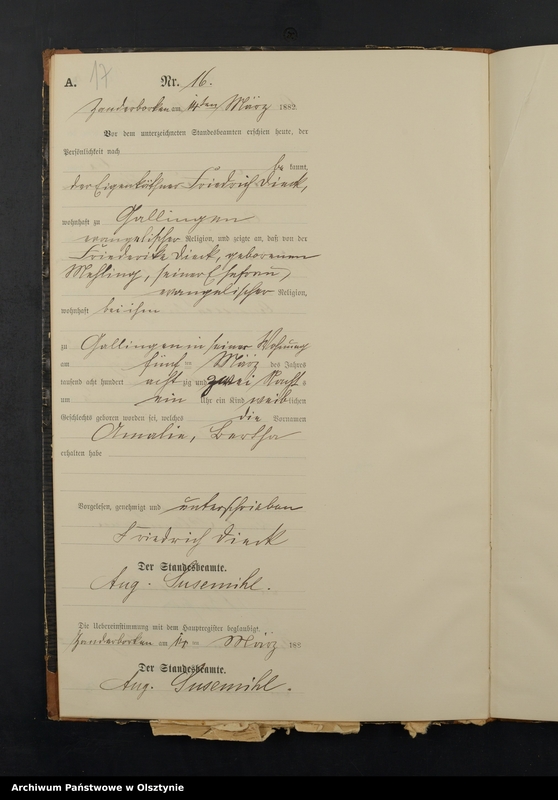 A. 17 Nr. 16.
Zanderborken am den März 1882
Vor dem unterzeichneten Standesbeamten erschien heute, der
Persönlichkeit nach
be kannt,
der Eigenkäthner Friedrich Dieck,
wohnhaft zu Gallingen
evangelischer Religion, und zeigte an, daß von der
Friederike Dieck, geborenen
Mehling, seiner Ehefrau,
evangelischer Religion,
wohnhaft bei ihm
zu Gallingen in seiner Wohnung
am fünf ten März des Jahres
tausend acht hundert acht zig und zwei Nacht s
um ein Uhr ein Kind weib lichen
Geschlechts geboren worden sei, welches die Vornamen
Amalie, Bertha
erhalten habe
Vorgelesen, genehmigt und unterschrieben
Friedrich Dieck
Der Standesbeamte.
Aug. Susemihl.
Die Uebereinstimmung mit dem Hauptregister beglaubigt.
Zanderborken am März 188
Der Standesbeamte.
Aug. Susemihl.
Archiwum Państwowe w Olsztynie